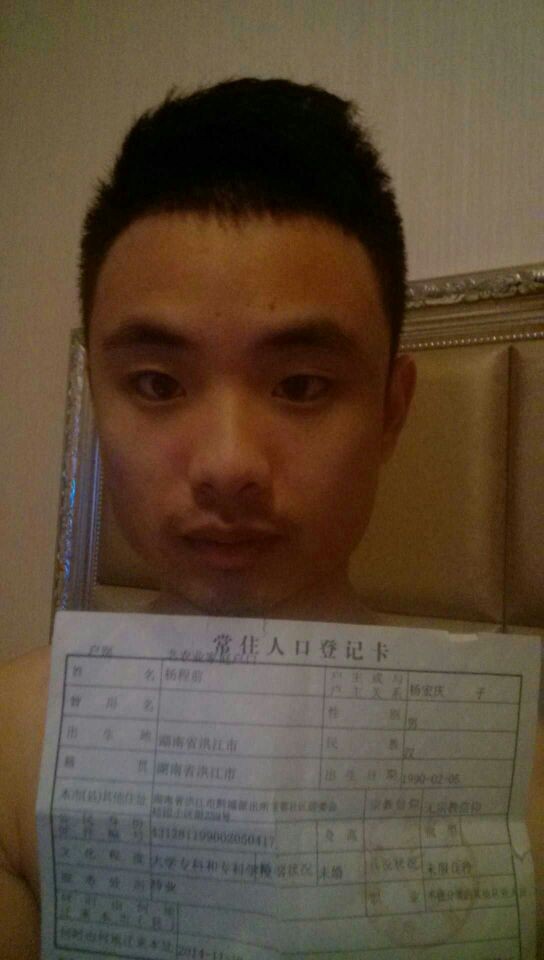 常住人口登记卡
户别 非农业家庭户口
姓名 杨程前 户主或与户主关系 杨宏庆 子
曾用名 性别 男
出生地 湖南省洪江市 民族 汉
籍贯 湖南省洪江市 出生日期 1990-02-05
本市(县)其他住址 宗教信仰 无宗教信仰
公民身份证件编号 431281199002050417 身高 血型
文化程度 大学专科和专科学校 婚姻状况 未婚 兵役状况 未服兵役
服务处所 待业 职业
何时由何地迁来本市(县)
何时由何地迁来本址 2014-11-